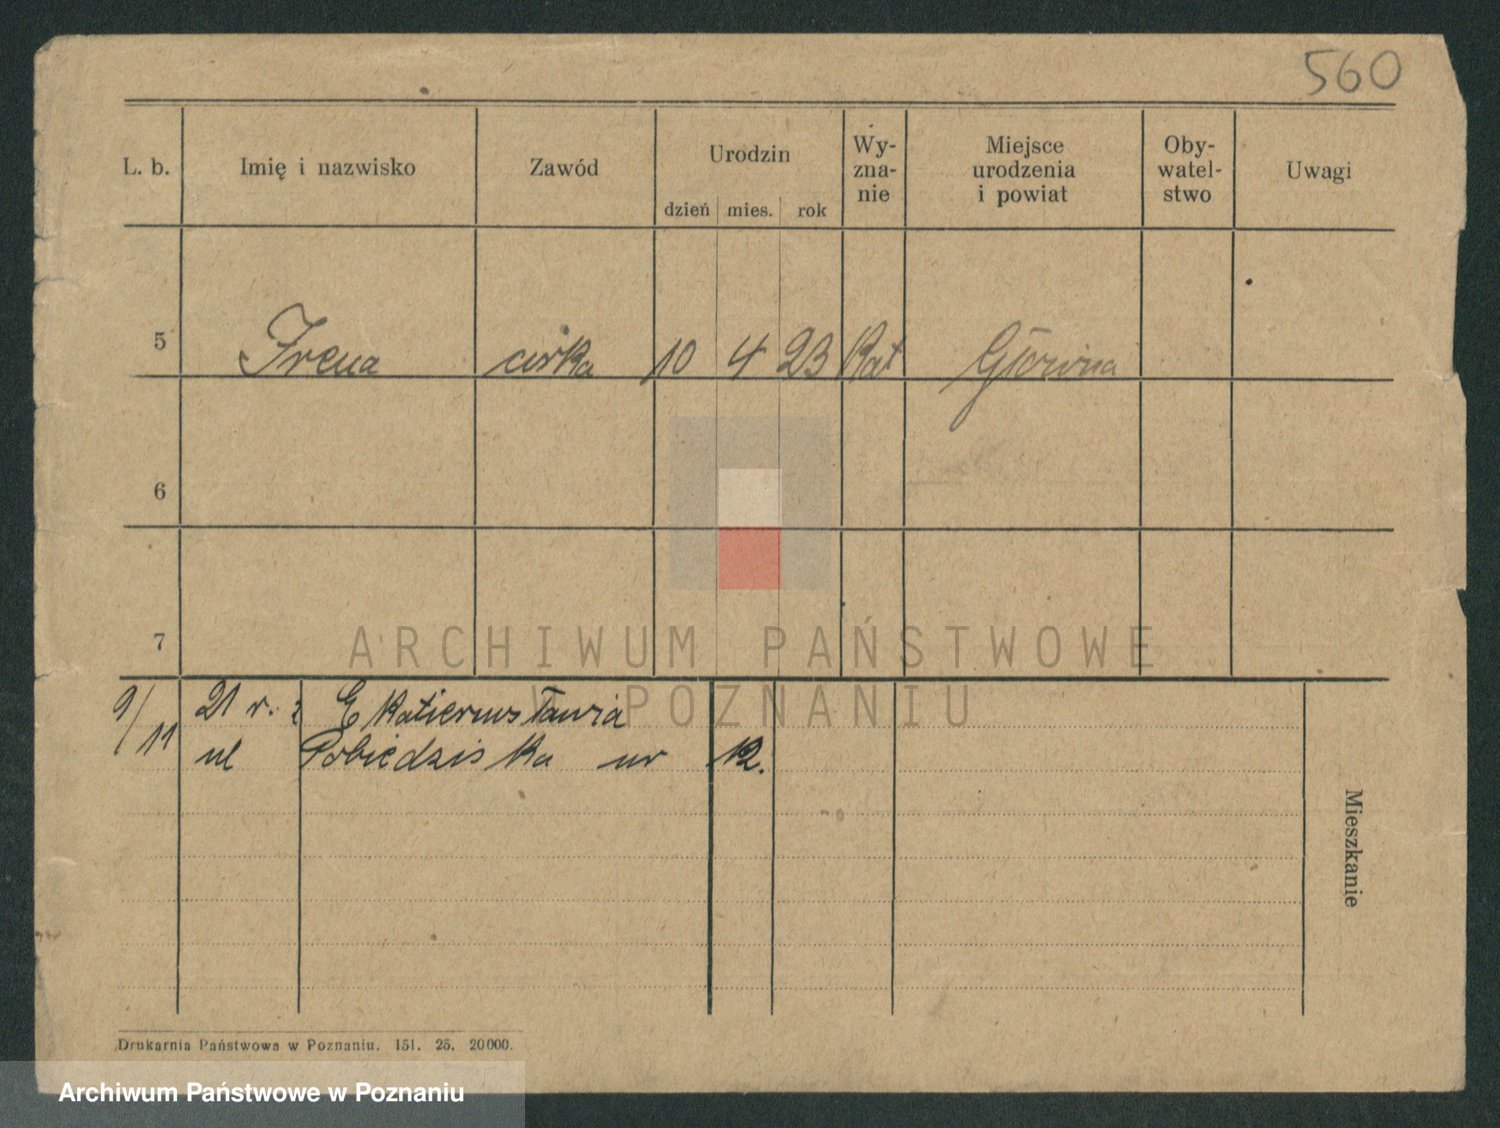 560
L. b. Imię i nazwisko Zawód Urodzin Wy-zna-nie Miejsce urodzenia i powiat Oby-watel-stwo Uwagi
dzień mies. rok
5 Irena córka 10 4 23 Kat Główna
6
7
9/11 21 r. z Ekatierinosławia
ul Pobiedziska nr 12.
Mieszkanie
Drukarnia Państwowa w Poznaniu. 151. 25. 20000.
ARCHIWUM PAŃSTWOWE
W POZNANIU
Archiwum Państwowe w Poznaniu